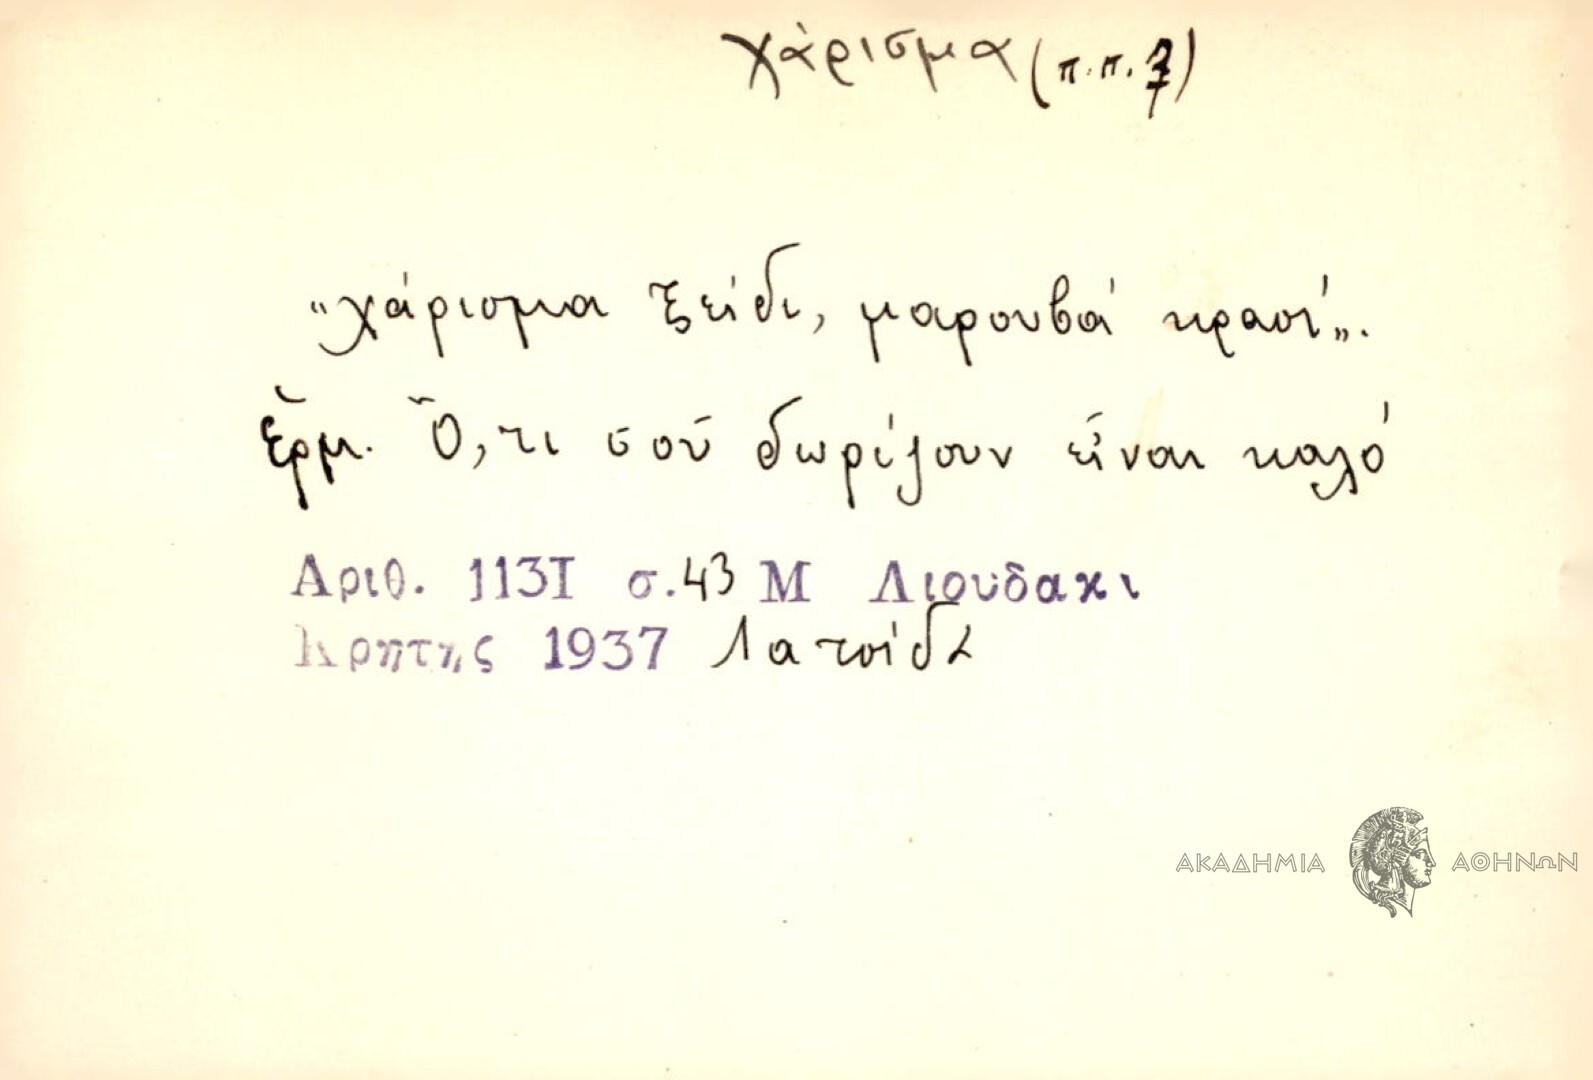 χάρισμα (π.π. 7)
"χάρισμα ξείδι, μαρουβά κρασί".
Ἑρμ. Ὅ,τι σοῦ δωρίζουν εἶναι καλό
Αριθ. 1131 σ. 43 Μ Λιουδακι
Κρητης 1937 Λατσίδα
ΑΚΑΔΗΜΙΑ ΑΘΗΝΩΝ